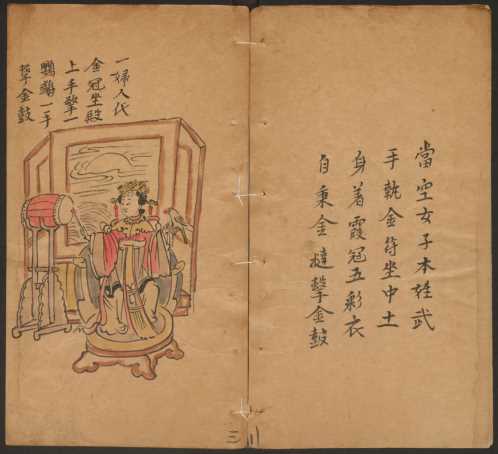 當空女子本姓武
手執金符坐中土
身着霞冠五彩衣
自秉金撾擊金鼓
一婦人代
金冠坐殿
上手擎一
鸚鵡一手
擊金鼓
三